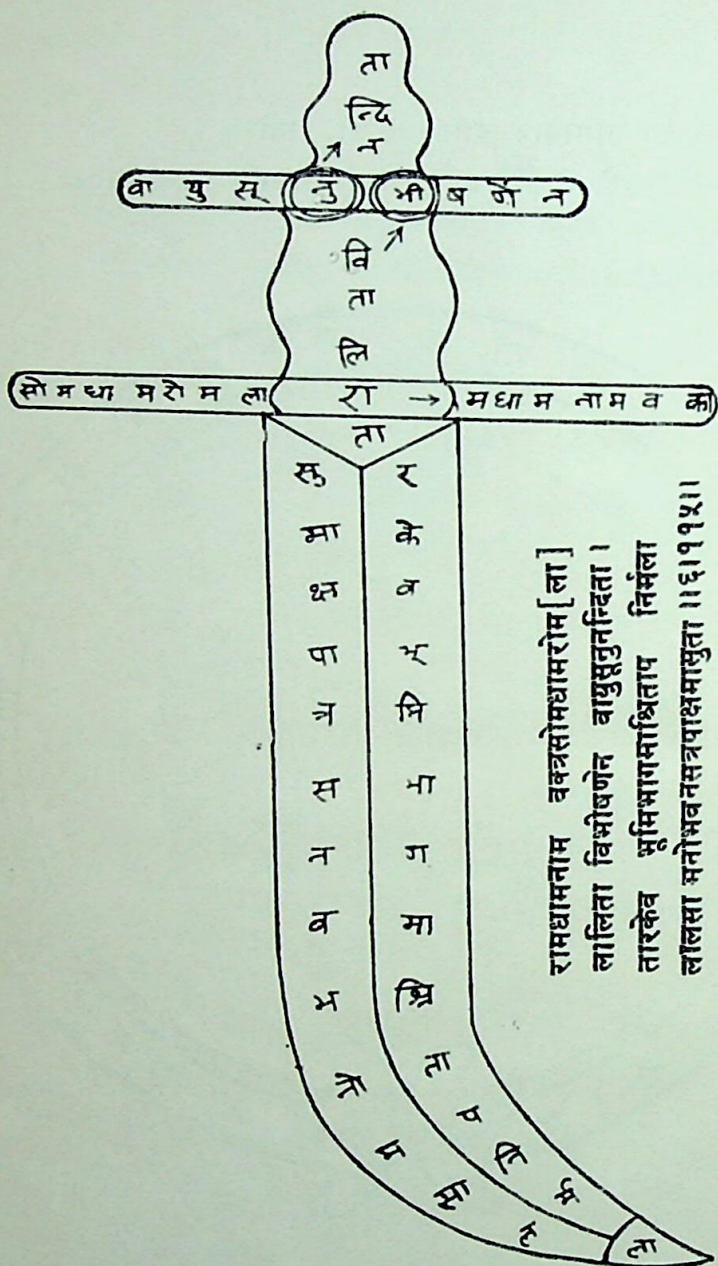 ता
न्दि
न
वा यु सू नु भी ष णे न
वि
ता
लि
सो म धा म रो म ला रा → म धा म ना म व क्त्र
ता
सु र
मा के
क्ष व
पा भू
त्र मि
स भा
न ग
व मा
भ श्रि
नो ता
म प
सा नि
ल र्म
ला
रामधामनाम वक्त्रसोमधामरोम[ला]
लालिता विभीषणेन वायुसूनुनन्दिता ।
तारकेव भूमिभागमाश्रिताप निर्मला
लालसा मनोभवनसत्रपाक्षमासुता ॥६।११५॥